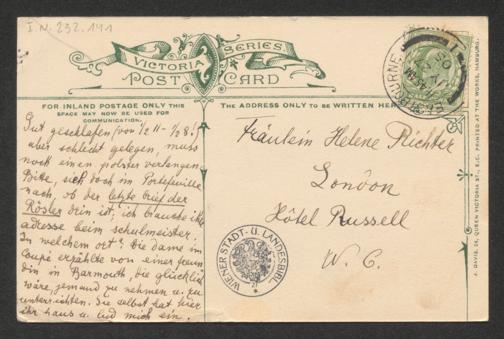 I.N. 232.141
VICTORIA SERIES
POST CARD
FOR INLAND POSTAGE ONLY THIS
SPACE MAY NOW BE USED FOR
COMMUNICATION.
THE ADDRESS ONLY TO BE WRITTEN HERE
Gut geschlafen (von 1/2 11 - 1/2 8!)
aber schlecht gelegen, muss
noch einen polster verlangen.
Bitte, sieh doch im Portefeuille
nach, ob der letzte brief der
Rösler drin ist; ich brauche ihre
adresse beim schulmeister.
In welchem ort? Die dame im
Coupé erzählte von einer freun
din in Barmouth, die glücklich
wäre, jemand zu nehmen u. zu
unterrichten. Sie selbst hat hier
ihr haus u. lud mich ein.
Fräulein Helene Richter
London
Hôtel Russell
W. C.
WIENER STADT- U. LANDESBIBL.
EASTBOURNE
J. DAVIS, 24, QUEEN VICTORIA ST., E.C. PRINTED AT THE WORKS, HAMBURG.